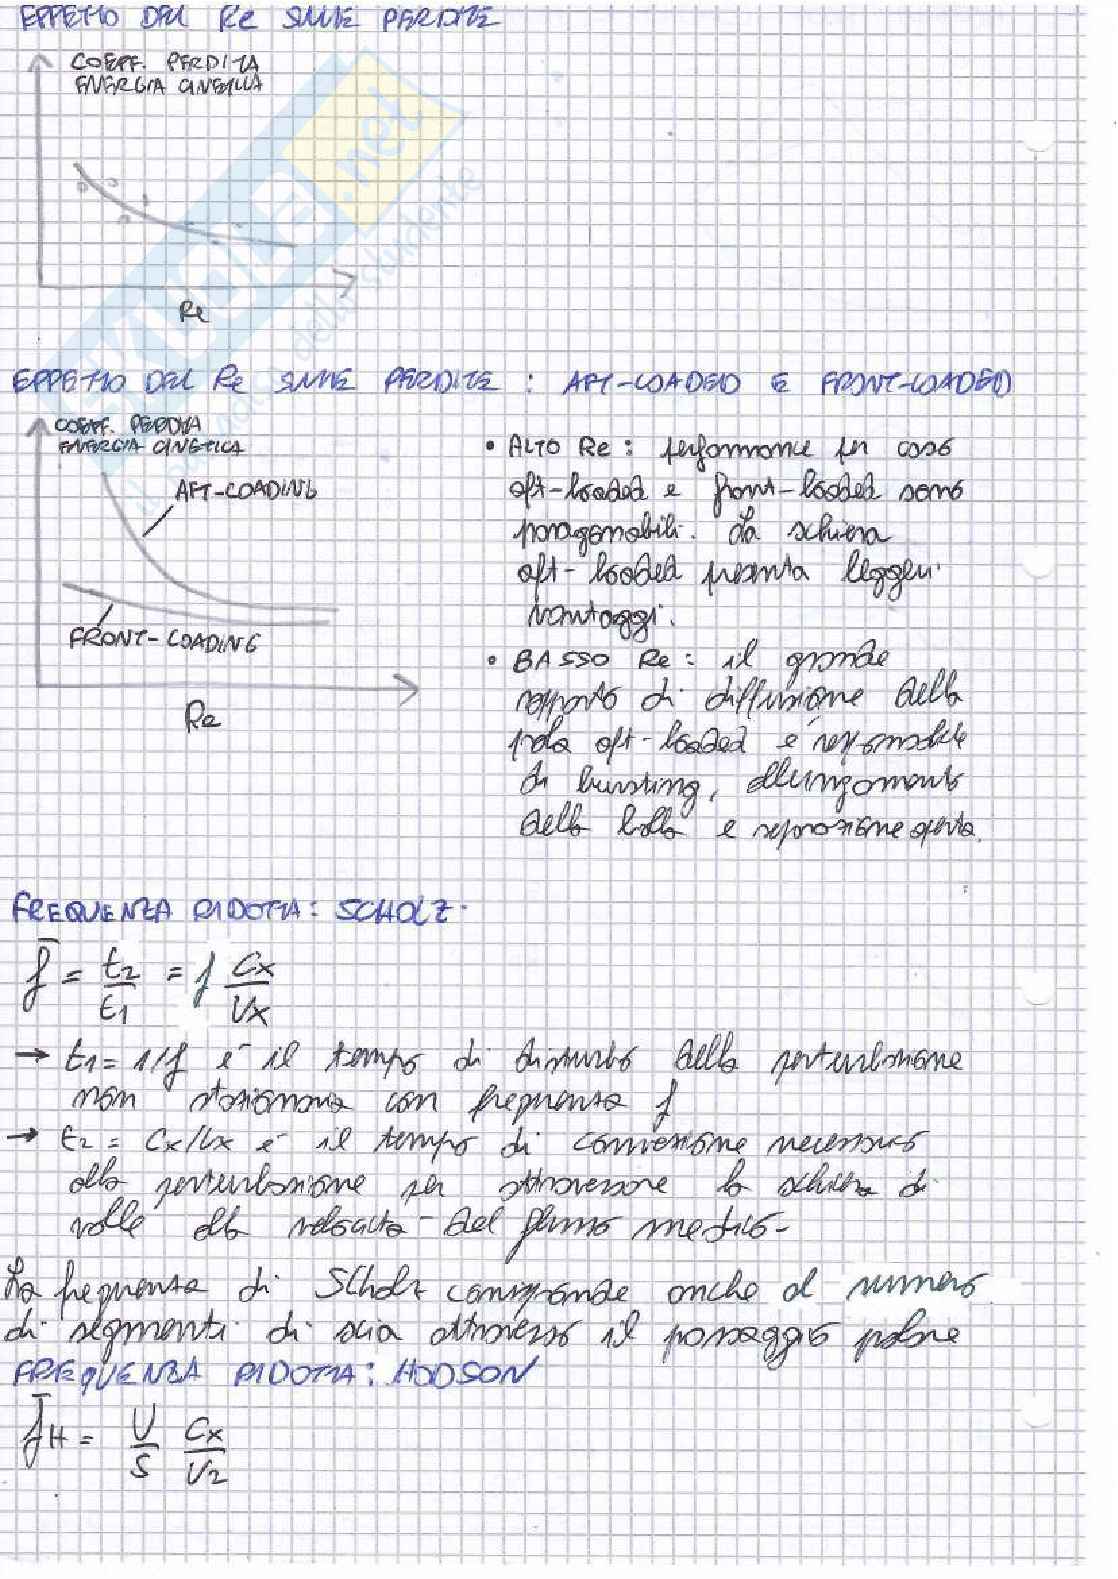 EFFETTO DEL Re SULLE PERDITE
COEFF. PERDITA
ENERGIA CINETICA
Re
EFFETTO DEL Re SULLE PERDITE: AFT-LOADED E FRONT-LOADED
COEFF. PERDITA
ENERGIA CINETICA
AFT-LOADING
FRONT-LOADING
Re
• ALTO Re: performance per caso
aft-loaded e front-loaded sono
paragonabili. La schiera
aft-loaded presenta leggeri
vantaggi.
• BASSO Re: il grande
rapporto di diffusione della
pala aft-loaded è responsabile
di bursting, allungamento
della bolla e separazione aperta.
FREQUENZA RIDOTTA: SCHOLZ.
f̄ = t2/t1 = f Cx/Vx
→ t1 = 1/f è il tempo di disturbo della perturbazione
non stazionaria con frequenza f
→ t2 = Cx/Vx è il tempo di convezione necessario
alla perturbazione per attraversare la schiera di
valle alla velocità del flusso medio-
La frequenza di Scholz corrisponde anche al numero
di segmenti di scia attraverso il passaggio palare
FREQUENZA RIDOTTA: HODSON
f̄H = U/S Cx/V2
SKUOLA.net
dello studente